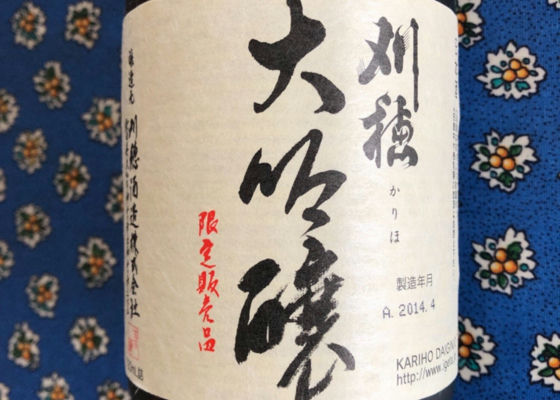 刈穂
かりほ
大吟醸
限定販売品
製造年月
A. 2014. 4
KARIHO DAIGIN
http://www.igeta.
醸造元
刈穂酒造株式会社